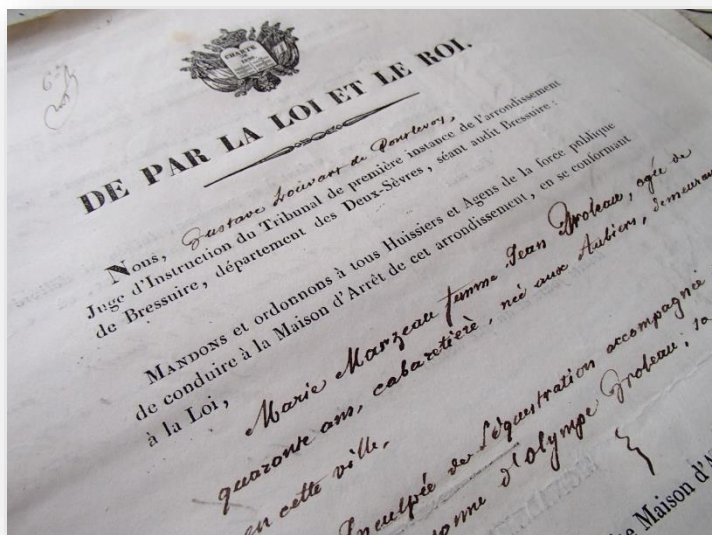 CHARTE
DE PAR LA LOI ET LE ROI.
Nous, Gustave Louvart de
Juge d'Instruction du Tribunal de première instance de l'arrondissement
de Bressuire, département des Deux-Sèvres, séant audit Bressuire :
MANDONS et ordonnons à tous Huissiers et Agens de la force publique
de conduire à la Maison d'Arrêt de cet arrondissement, en se conformant
à la Loi,
Marie Marzeau femme Jean Proleau, agée de
quarante ans, cabaretière, née aux Aubiers, demeurant
en cette ville.
Inculpée de séquestration accompagnée
d'Olympe Proleau, sa
Maison d'A